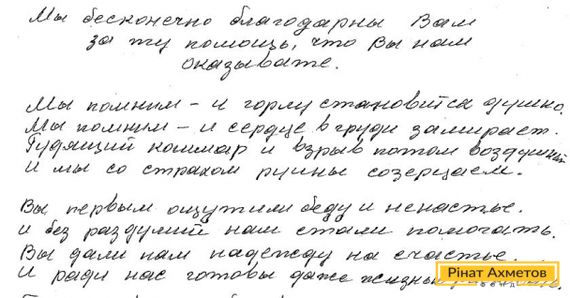 Мы бесконечно благодарны Вам
за ту помощь, что Вы нам
оказывате.
Мы помним – и горлу становится душно.
Мы помним – и сердце в груди замирает.
Гудящий кошмар и взрыв потом воздушный
И мы со страхом руины созерцаем.
Вы первым ощутили беду и ненастье.
и без раздумий нам стали помогать.
Вы дали нам надежду на счастье.
И ради нас готовы даже жизнью
Рінат Ахметов